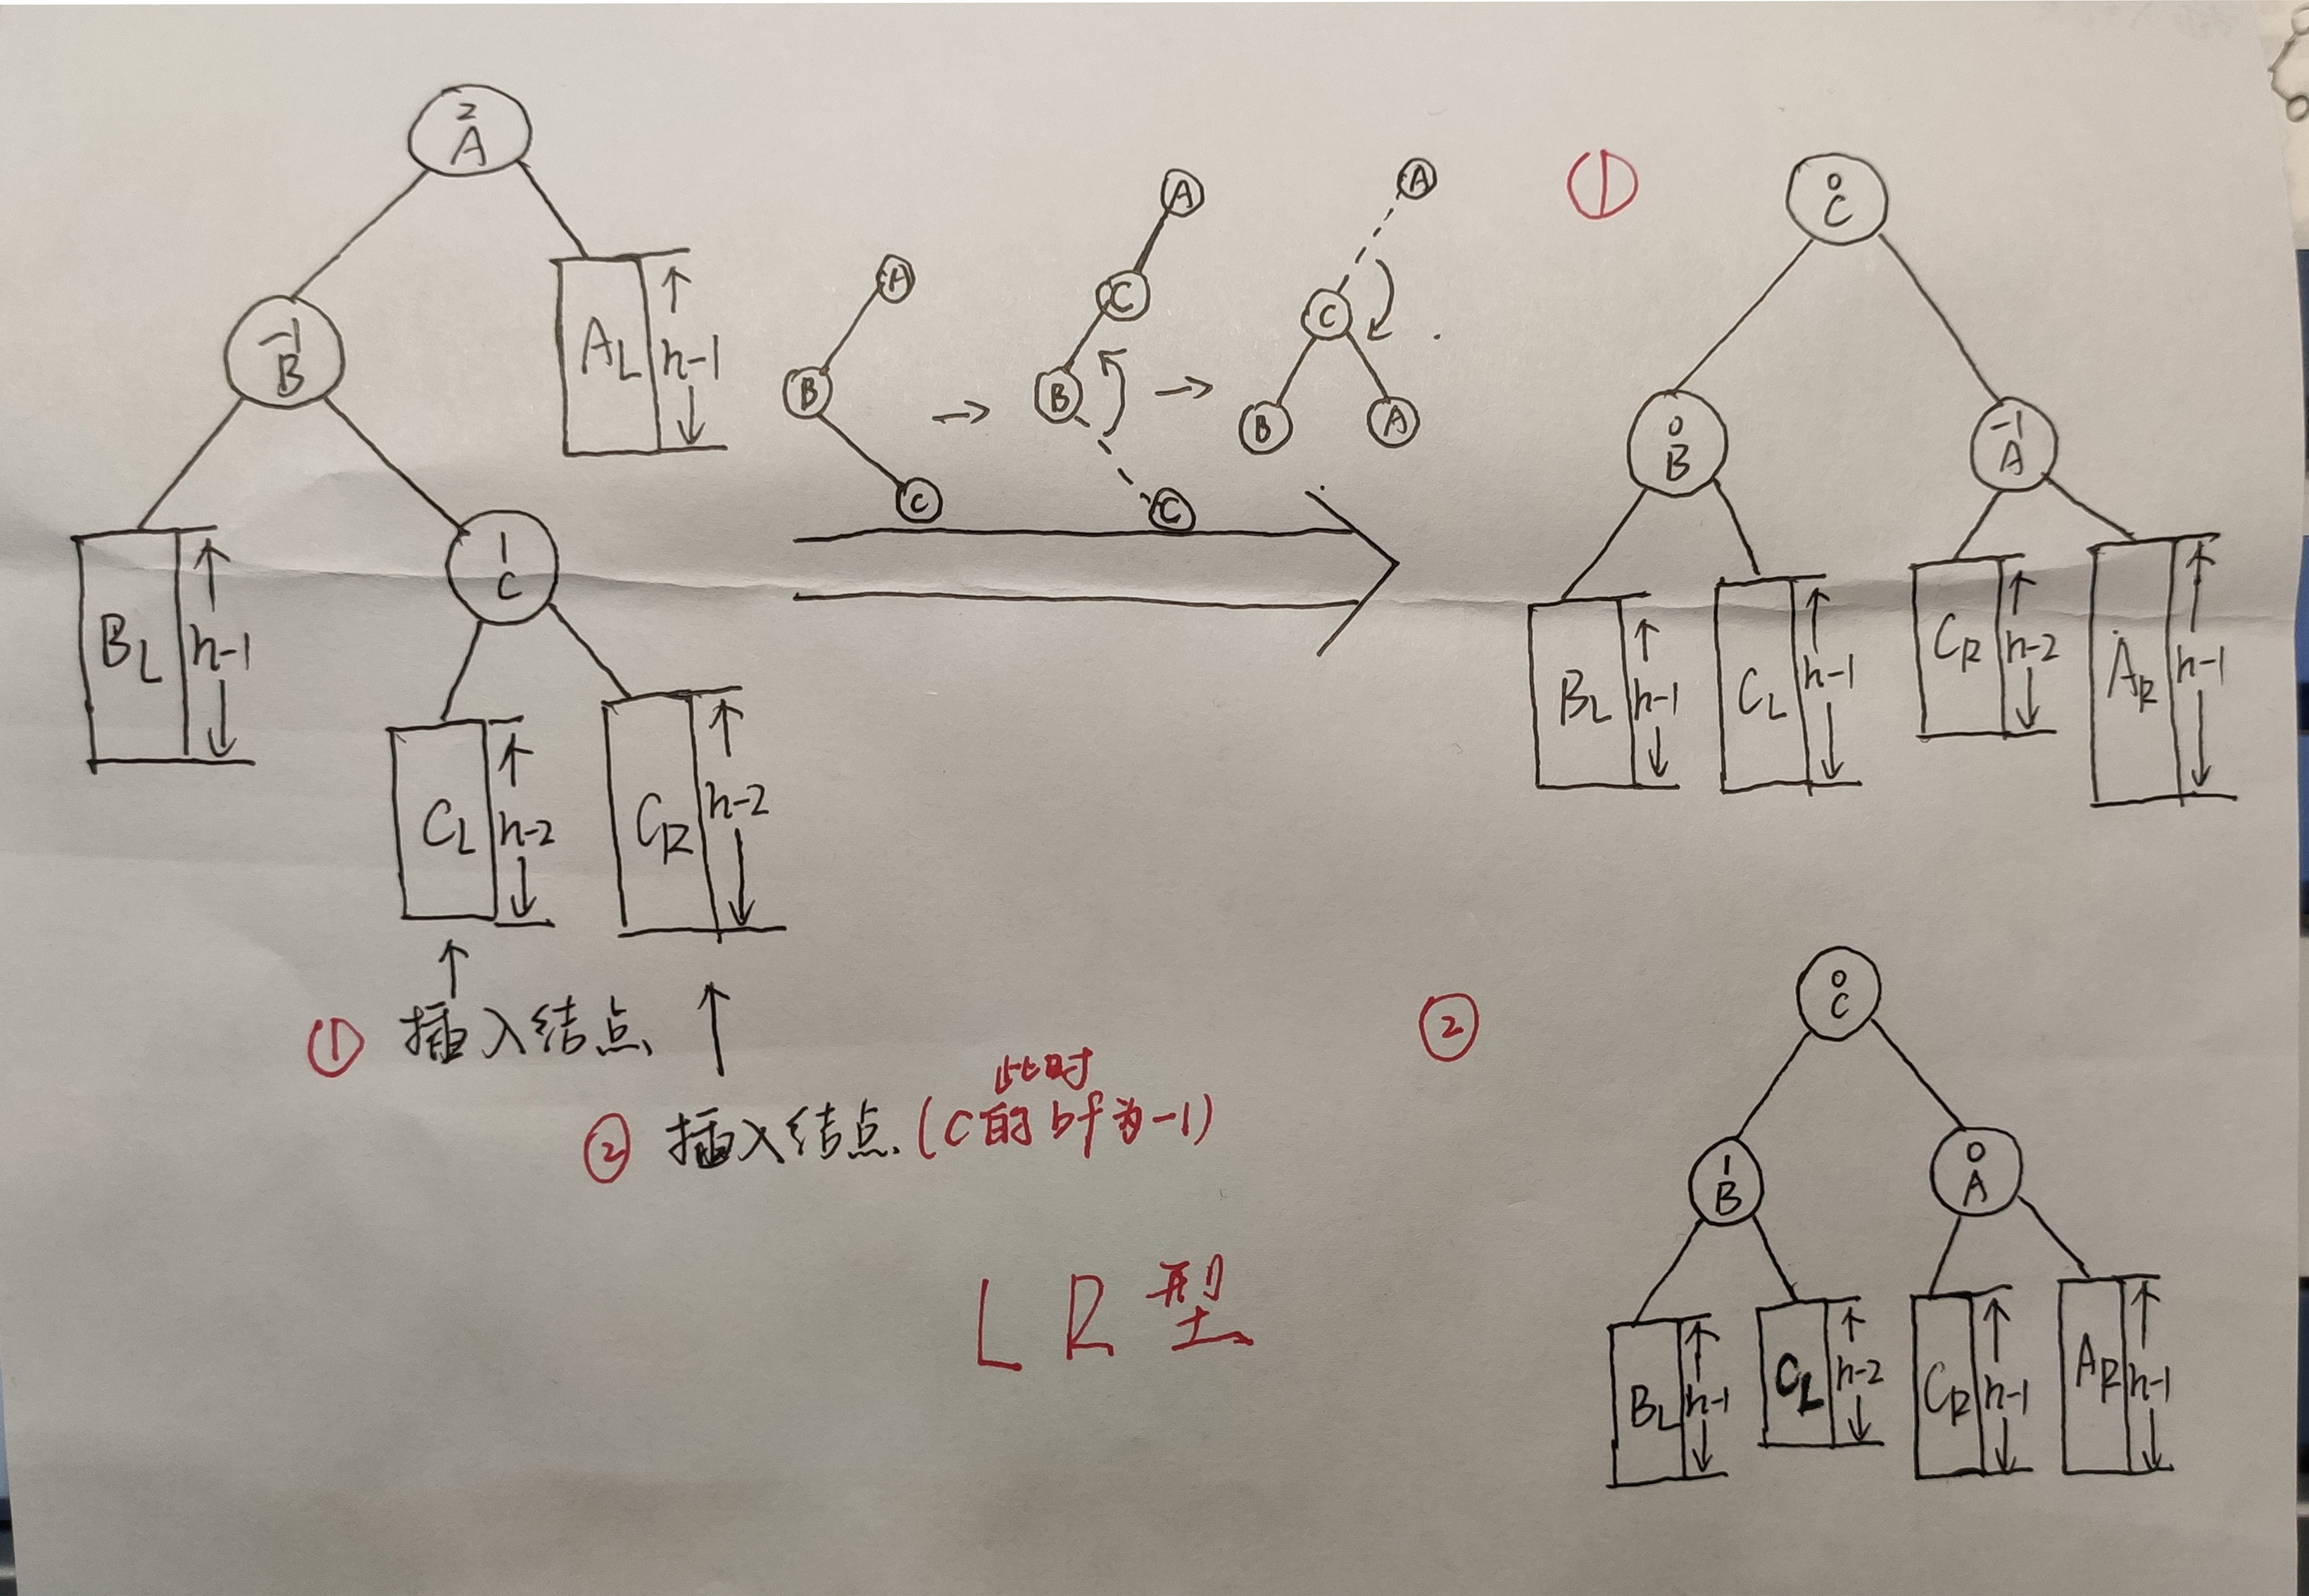 2
A
-1
B
A_L
h-1
B_L
h-1
1
C
C_L
h-2
C_R
h-2
① 插入结点
② 插入结点 (C的bf为-1)
此时
A
B
C
→
A
C
B
C
→
A
C
B
A
LR型
①
0
C
0
B
-1
A
B_L
h-1
C_L
h-1
C_R
h-2
A_R
h-1
②
0
C
1
B
0
A
B_L
h-1
C_L
h-2
C_R
h-1
A_R
h-1